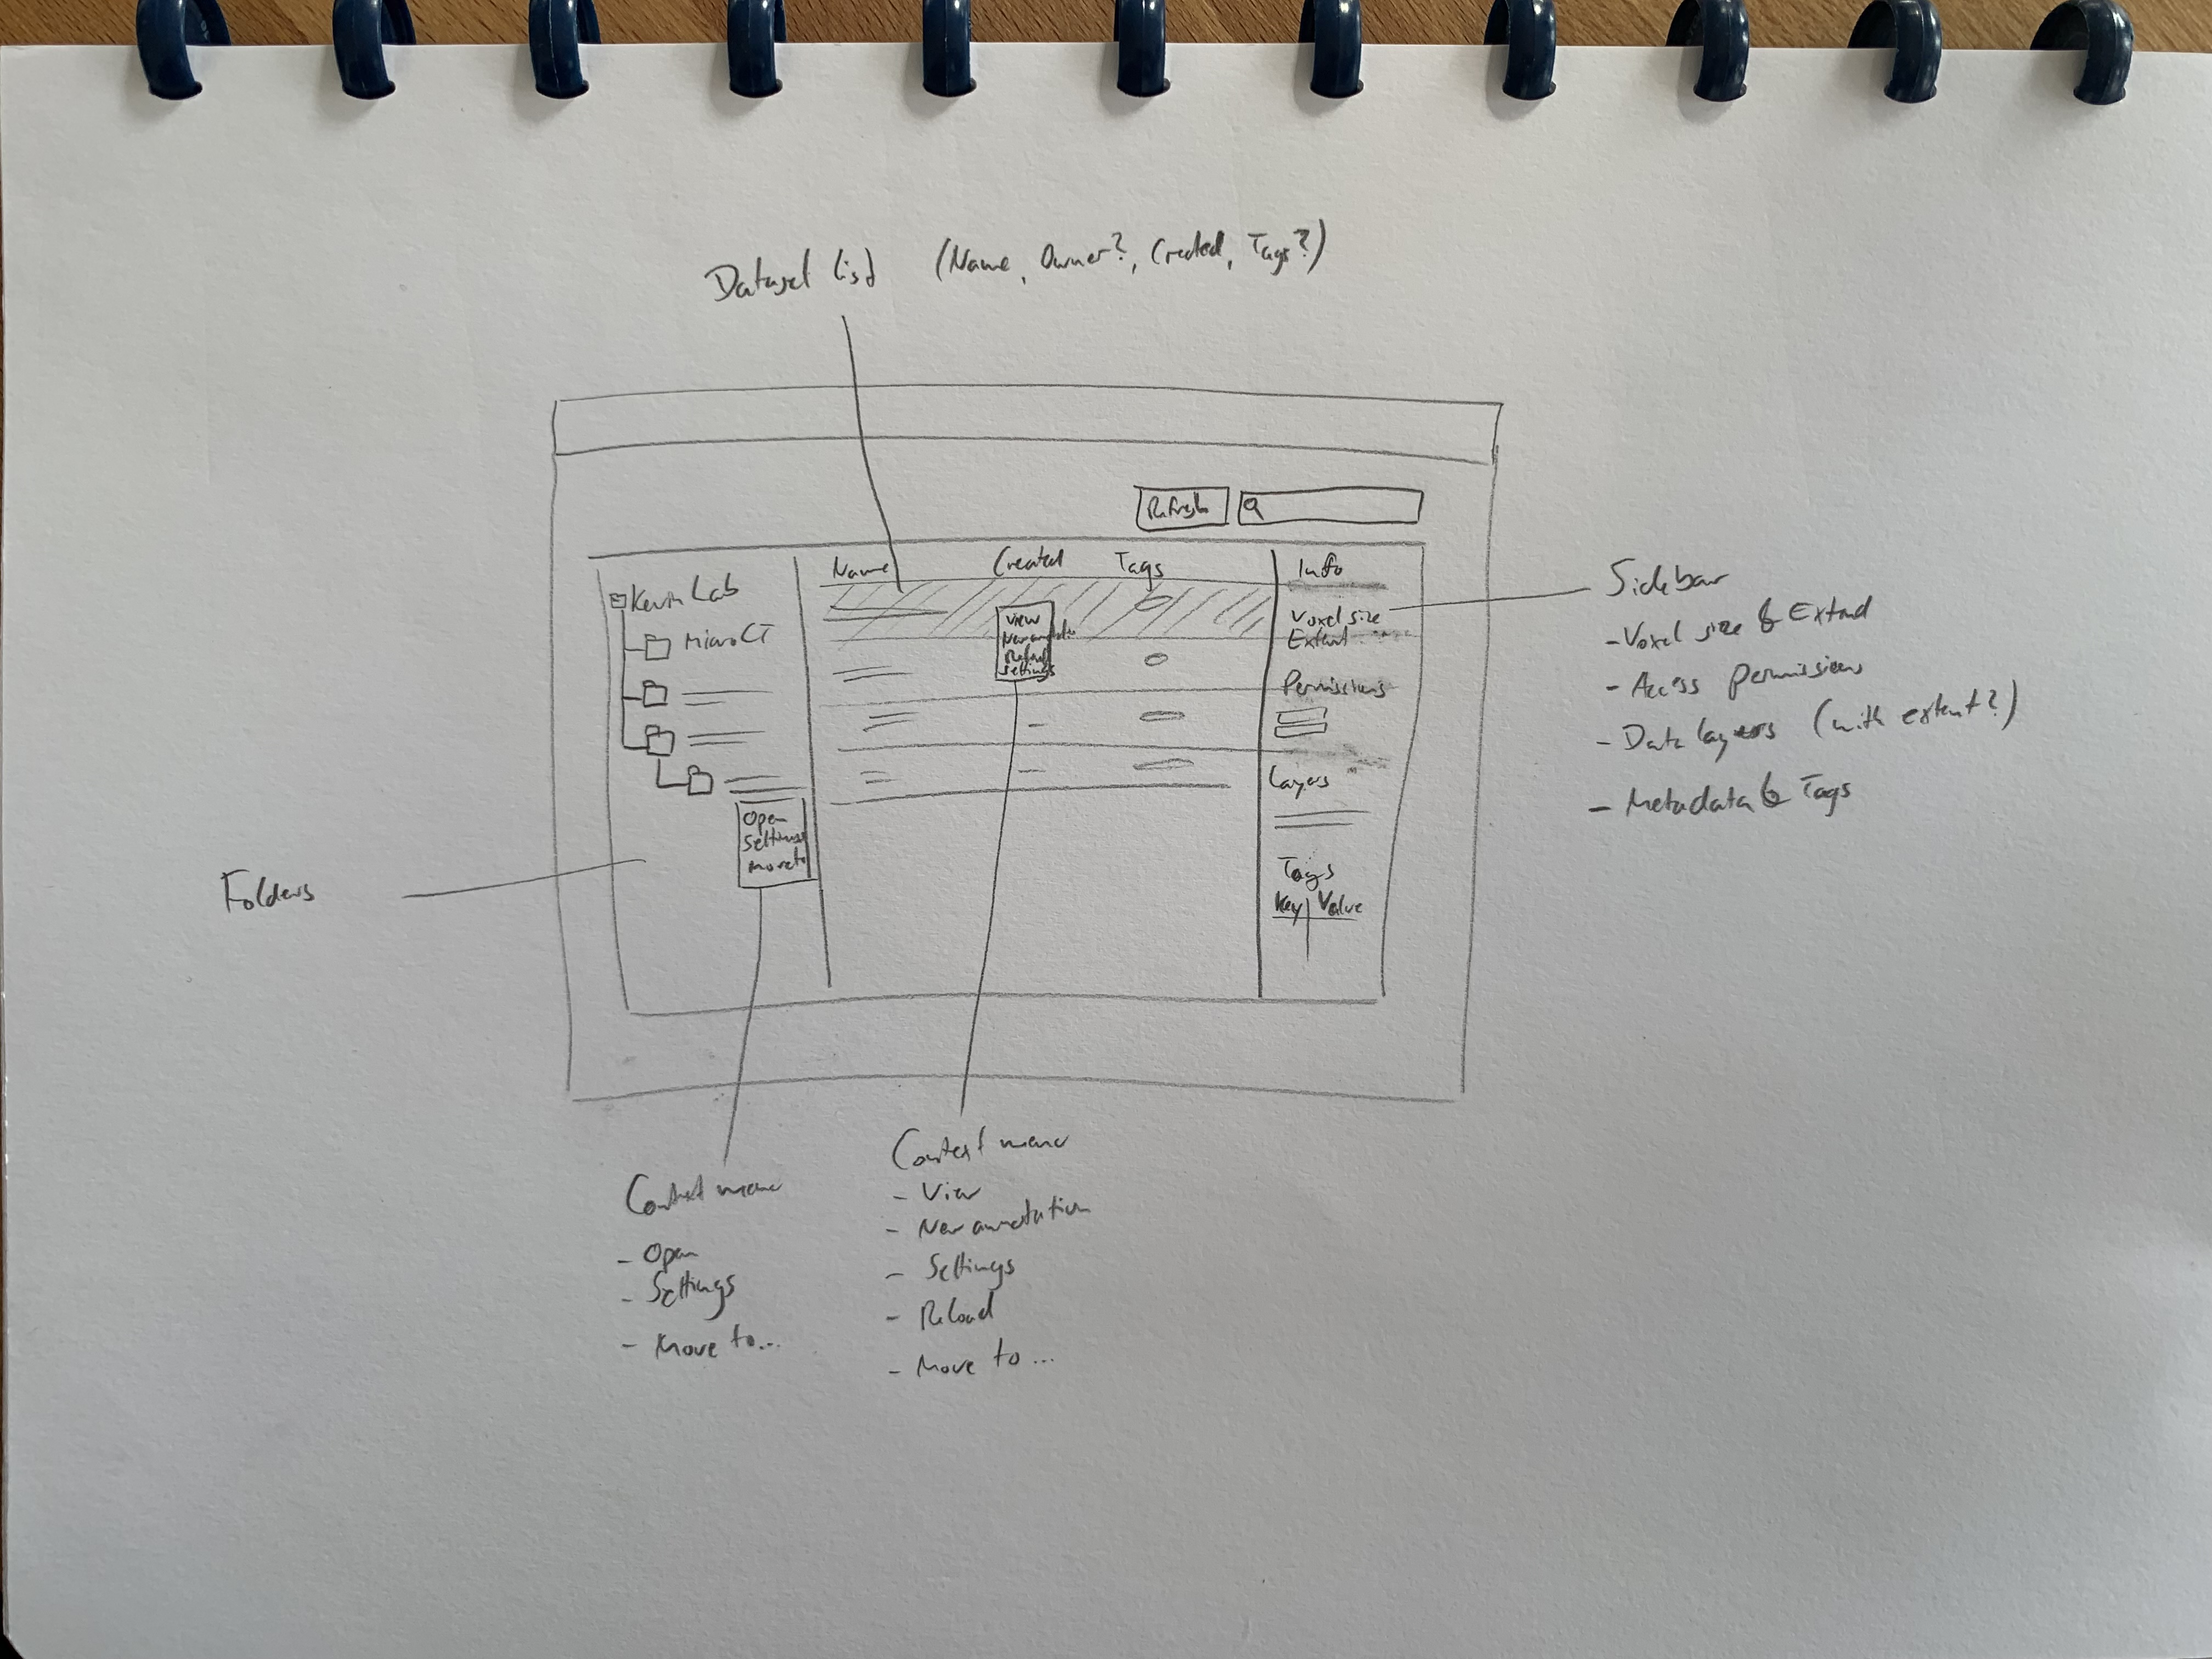 Dataset list (Name, Owner?, Created, Tags?)
Refresh
Name Created Tags
Kevin Lab
MicroCT
View
New annotatio
Reload
Settings
Open
Settings
Move to
Info
Voxel size
Extent
Permissions
Layers
Tags
Key Value
Sidebar
- Voxel size & Extend
- Access permissions
- Data layers (with extent?)
- Metadata & Tags
Folders
Context menu
- Open
- Settings
- Move to...
Context menu
- View
- New annotation
- Settings
- Reload
- Move to ...